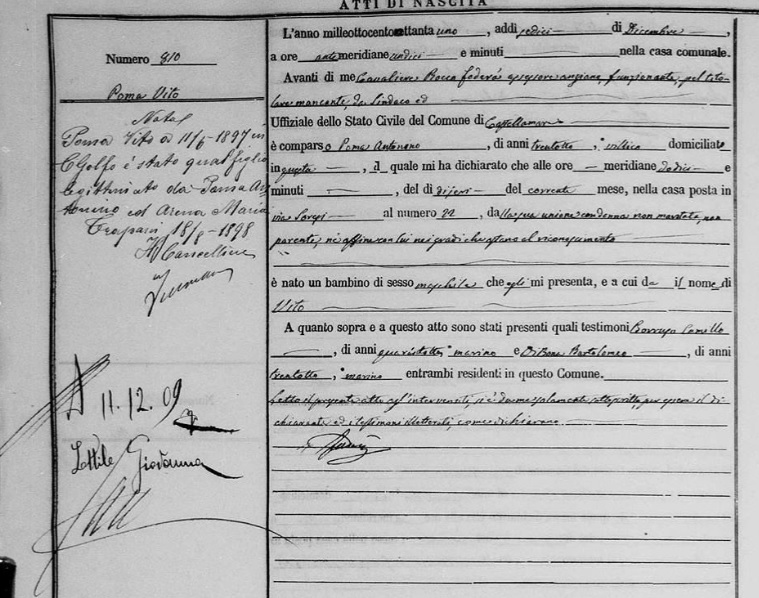 ATTI DI NASCITA
Numero 810
Poma Vito
Nota
Poma Vito a 11/6-1897 in
C Golfo è stato qual figlio
legittimato da Poma An
tonino ed Arena Maria
Trapani 18/8-1898
Il Cancelliere
11.12.09
Giovanna
L'anno milleottocentottantauno, addì sedici di Dicembre,
a ore antemeridiane undici e minuti nella casa comunale.
Avanti di me Cavaliere Bocca assessore anziano, funzionante, pel tito-
lare mancante, da Sindaco ed
Uffiziale dello Stato Civile del Comune di Castellammare
è comparso Poma Antonino, di anni trentotto, villico domiciliato
in questa, il quale mi ha dichiarato che alle ore meridiane dodici e
minuti, del dì dodici del corrente mese, nella casa posta in
via al numero 22, dalla sua unione con donna non maritata, non
parente, nè affine con lui nei gradi che ostano al riconoscimento
è nato un bambino di sesso maschile che egli mi presenta, e a cui da il nome di
Vito
A quanto sopra e a questo atto sono stati presenti quali testimoni Camillo
, di anni quarantotto, marino e Di Bona Bartolomeo, di anni
trentotto, marino entrambi residenti in questo Comune.
Letto il presente atto agl'intervenuti, si è da me solamente sottoscritto, per essere il di
chiarante ed i testimoni illetterati, come dichiarano